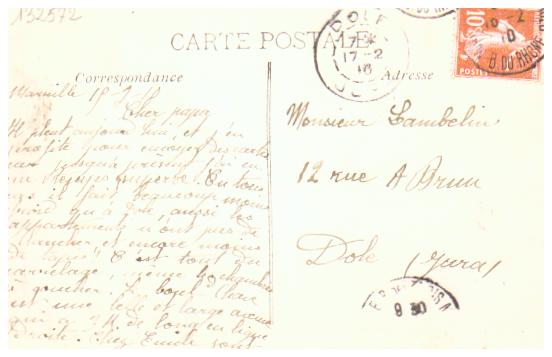 132572
CARTE POSTALE
Correspondance
Adresse
DOLE
17-2
10
10c
B. DU RHONE
Marseille 15
Cher papa
Il pleut aujourd'hui, et j'en
profite pour envoyer des cartes
car jusqu'à présent j'ai eu
un temps superbe. En tous
cas il fait beaucoup moins
froid qu'à Dole, aussi les
appartements n'ont pas de
plancher et encore moins
de tapis. C'est tout du
carrelage, même les chambres
à coucher. Le boul. Chave
est une belle et large avenue
qui a 3 K. de long en ligne
droite. Chez Emile sont
Monsieur Lambelin
12 rue A Brun
Dole (Jura)
9 30